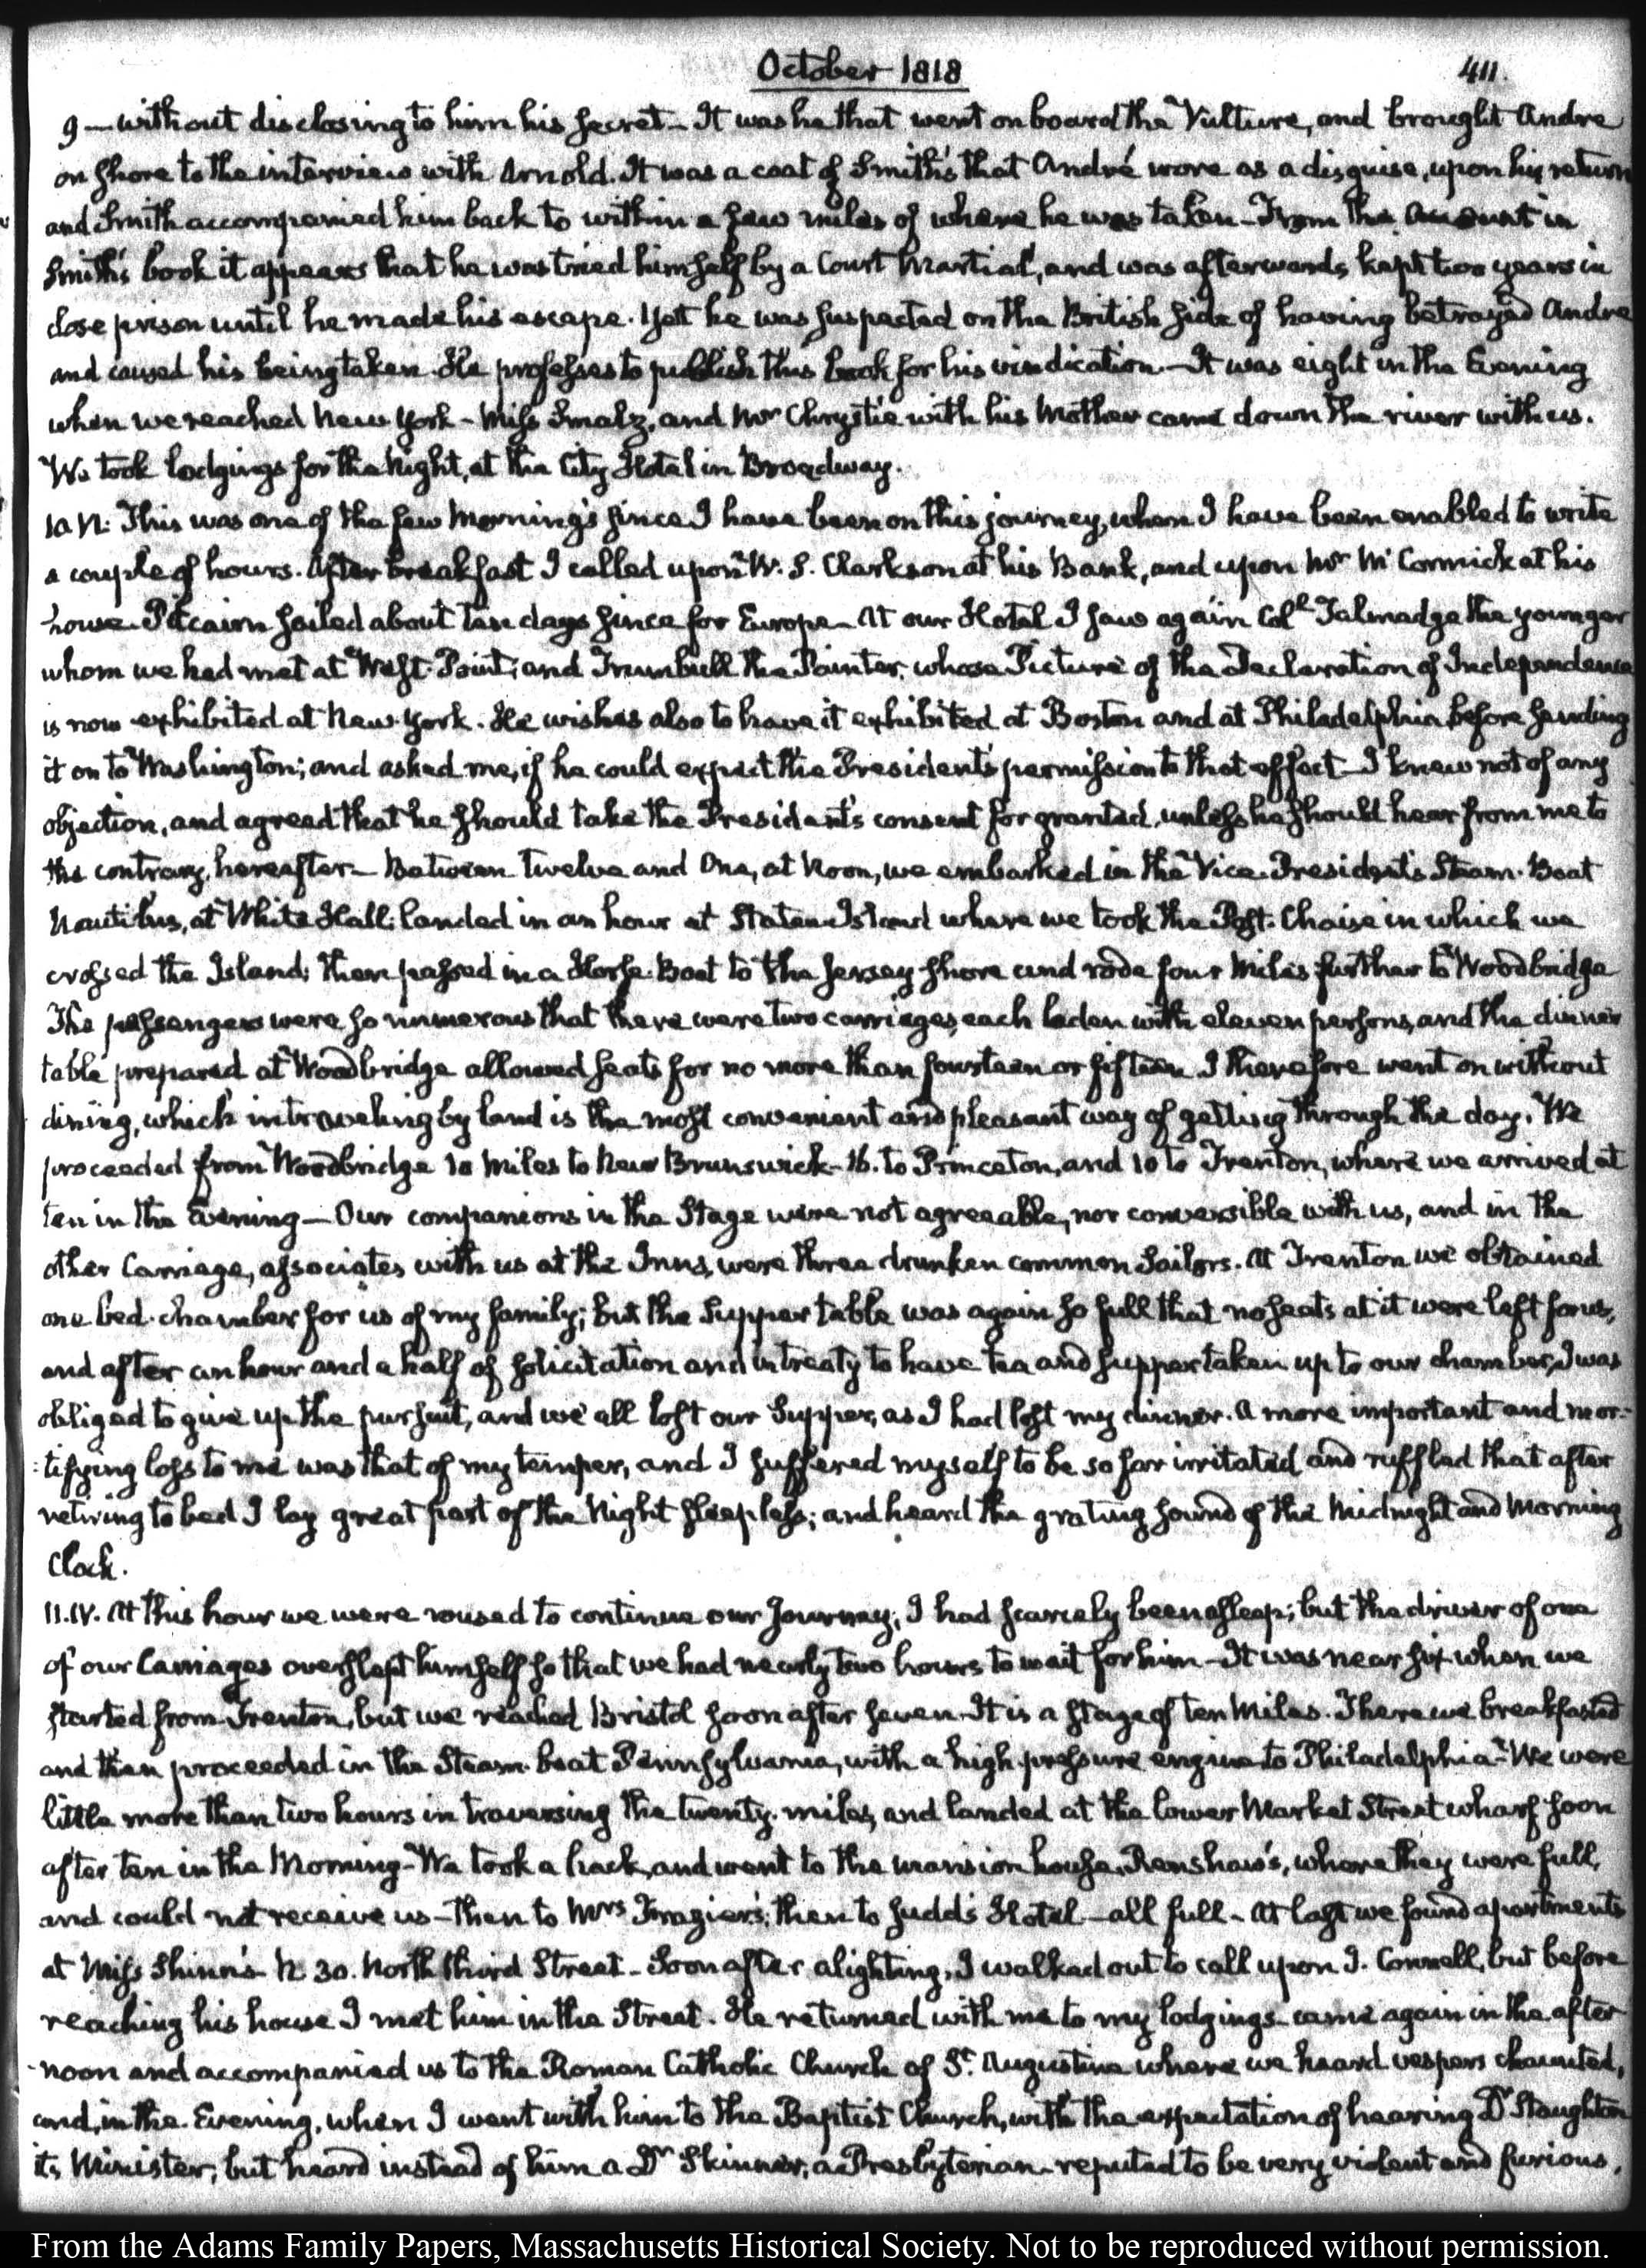 October 1818
411.
9 — without disclosing to him his secret — It was he that went on board the Vulture, and brought Andre
on shore to the interview with Arnold. It was a coat of Smith's that André wore as a disguise, upon his return
and Smith accompanied him back to within a few miles of where he was taken — From the Account in
Smith's book it appears that he was tried himself by a Court Martial, and was afterwards kept two years in
close prison until he made his escape. Yet he was suspected on the British side of having betrayed Andre
and caused his being taken. He professes to publish this book for his vindication. — It was eight in the Evening
when we reached New York — Miss Smalz, and Mr Chrystie with his Mother came down the river with us.
We took lodgings for the Night, at the City Hotel in Broadway.
10. VI. This was one of the few Morning's since I have been on this journey, when I have been enabled to write
a couple of hours. After breakfast I called upon W. S. Clarkson at his Bank, and upon Mr McCormick at his
house. Pitcairn sailed about ten days since for Europe — At our Hotel I saw again Coll Talmadge the younger
whom we had met at West-Point; and Trumbull the Painter, whose Picture of the Declaration of Independence
is now exhibited at New-York. He wishes also to have it exhibited at Boston and at Philadelphia before sending
it on to Washington; and asked me, if he could expect the President's permission to that effect — I knew not of any
objection, and agreed that he should take the President's consent for granted, unless he should hear from me to
the contrary, hereafter — Between twelve and One, at Noon, we embarked in the Vice-President's Steam-Boat
Nautilus, at White Hall; landed in an hour at Staten Island where we took the Post-Chaise in which we
crossed the Island; then passed in a Horse-Boat to the Jersey shore and rode four Miles further to Woodbridge
The passengers were so numerous that there were two carriages, each laden with eleven persons, and the dinner
table prepared at Woodbridge allowed seats for no more than fourteen or fifteen I therefore went on without
dining, which in travelling by land is the most convenient and pleasant way of getting through the day. We
proceeded from Woodbridge 10 miles to New Brunswick — 16. to Princeton, and 10 to Trenton, where we arrived at
ten in the Evening — Our companions in the Stage were not agreeable, nor conversible with us, and in the
other Carriage, associates with us at the Inns, were three drunken common Sailors. At Trenton we obtained
one bed-chamber for us of my family; but the Supper table was again so full that no seats at it were left for us,
and after an hour and a half of solicitation and intreaty to have tea and supper taken up to our chamber, I was
obliged to give up the pursuit, and we all lost our Supper, as I had lost my dinner. A more important and mor-
:tifying loss to me was that of my temper, and I suffered myself to be so far irritated and ruffled that after
retiring to bed I lay great part of the Night sleepless; and heard the grating sound of the Midnight and Morning
Clock.
11. IV. At this hour we were roused to continue our Journey; I had scarcely been asleep; but the driver of one
of our Carriages overslept himself so that we had nearly two hours to wait for him — It was near six when we
started from Trenton, but we reached Bristol soon after seven — It is a stage of ten Miles. There we breakfasted
and then proceeded in the Steam-boat Pennsylvania, with a high pressure engine to Philadelphia — We were
little more than two hours in traversing the twenty-miles, and landed at the lower Market Street wharf soon
after ten in the Morning — We took a hack, and went to the mansion house, Renshaw's, where they were full,
and could not receive us — then to Mrs Frazier's; then to Judd's Hotel — all full — At last we found apartments
at Miss Shinn's N. 30. North third Street — Soon after alighting, I walked out to call upon J. Connell, but before
reaching his house I met him in the Street. He returned with me to my lodgings — came again in the after
-noon and accompanied us to the Roman Catholic Church of St. Augustine where we heard vespers chaunted,
and, in the Evening, when I went with him to the Baptist Church, with the expectation of hearing Dr Staughton
its Minister; but heard instead of him a Dr Skinner, a Presbyterian — reputed to be very violent and furious,
From the Adams Family Papers, Massachusetts Historical Society. Not to be reproduced without permission.